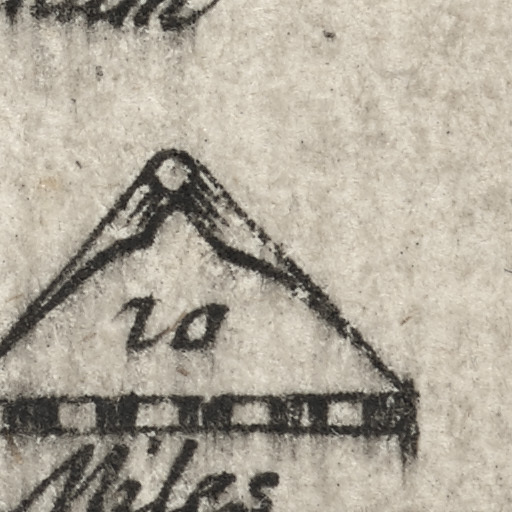 10
Miles